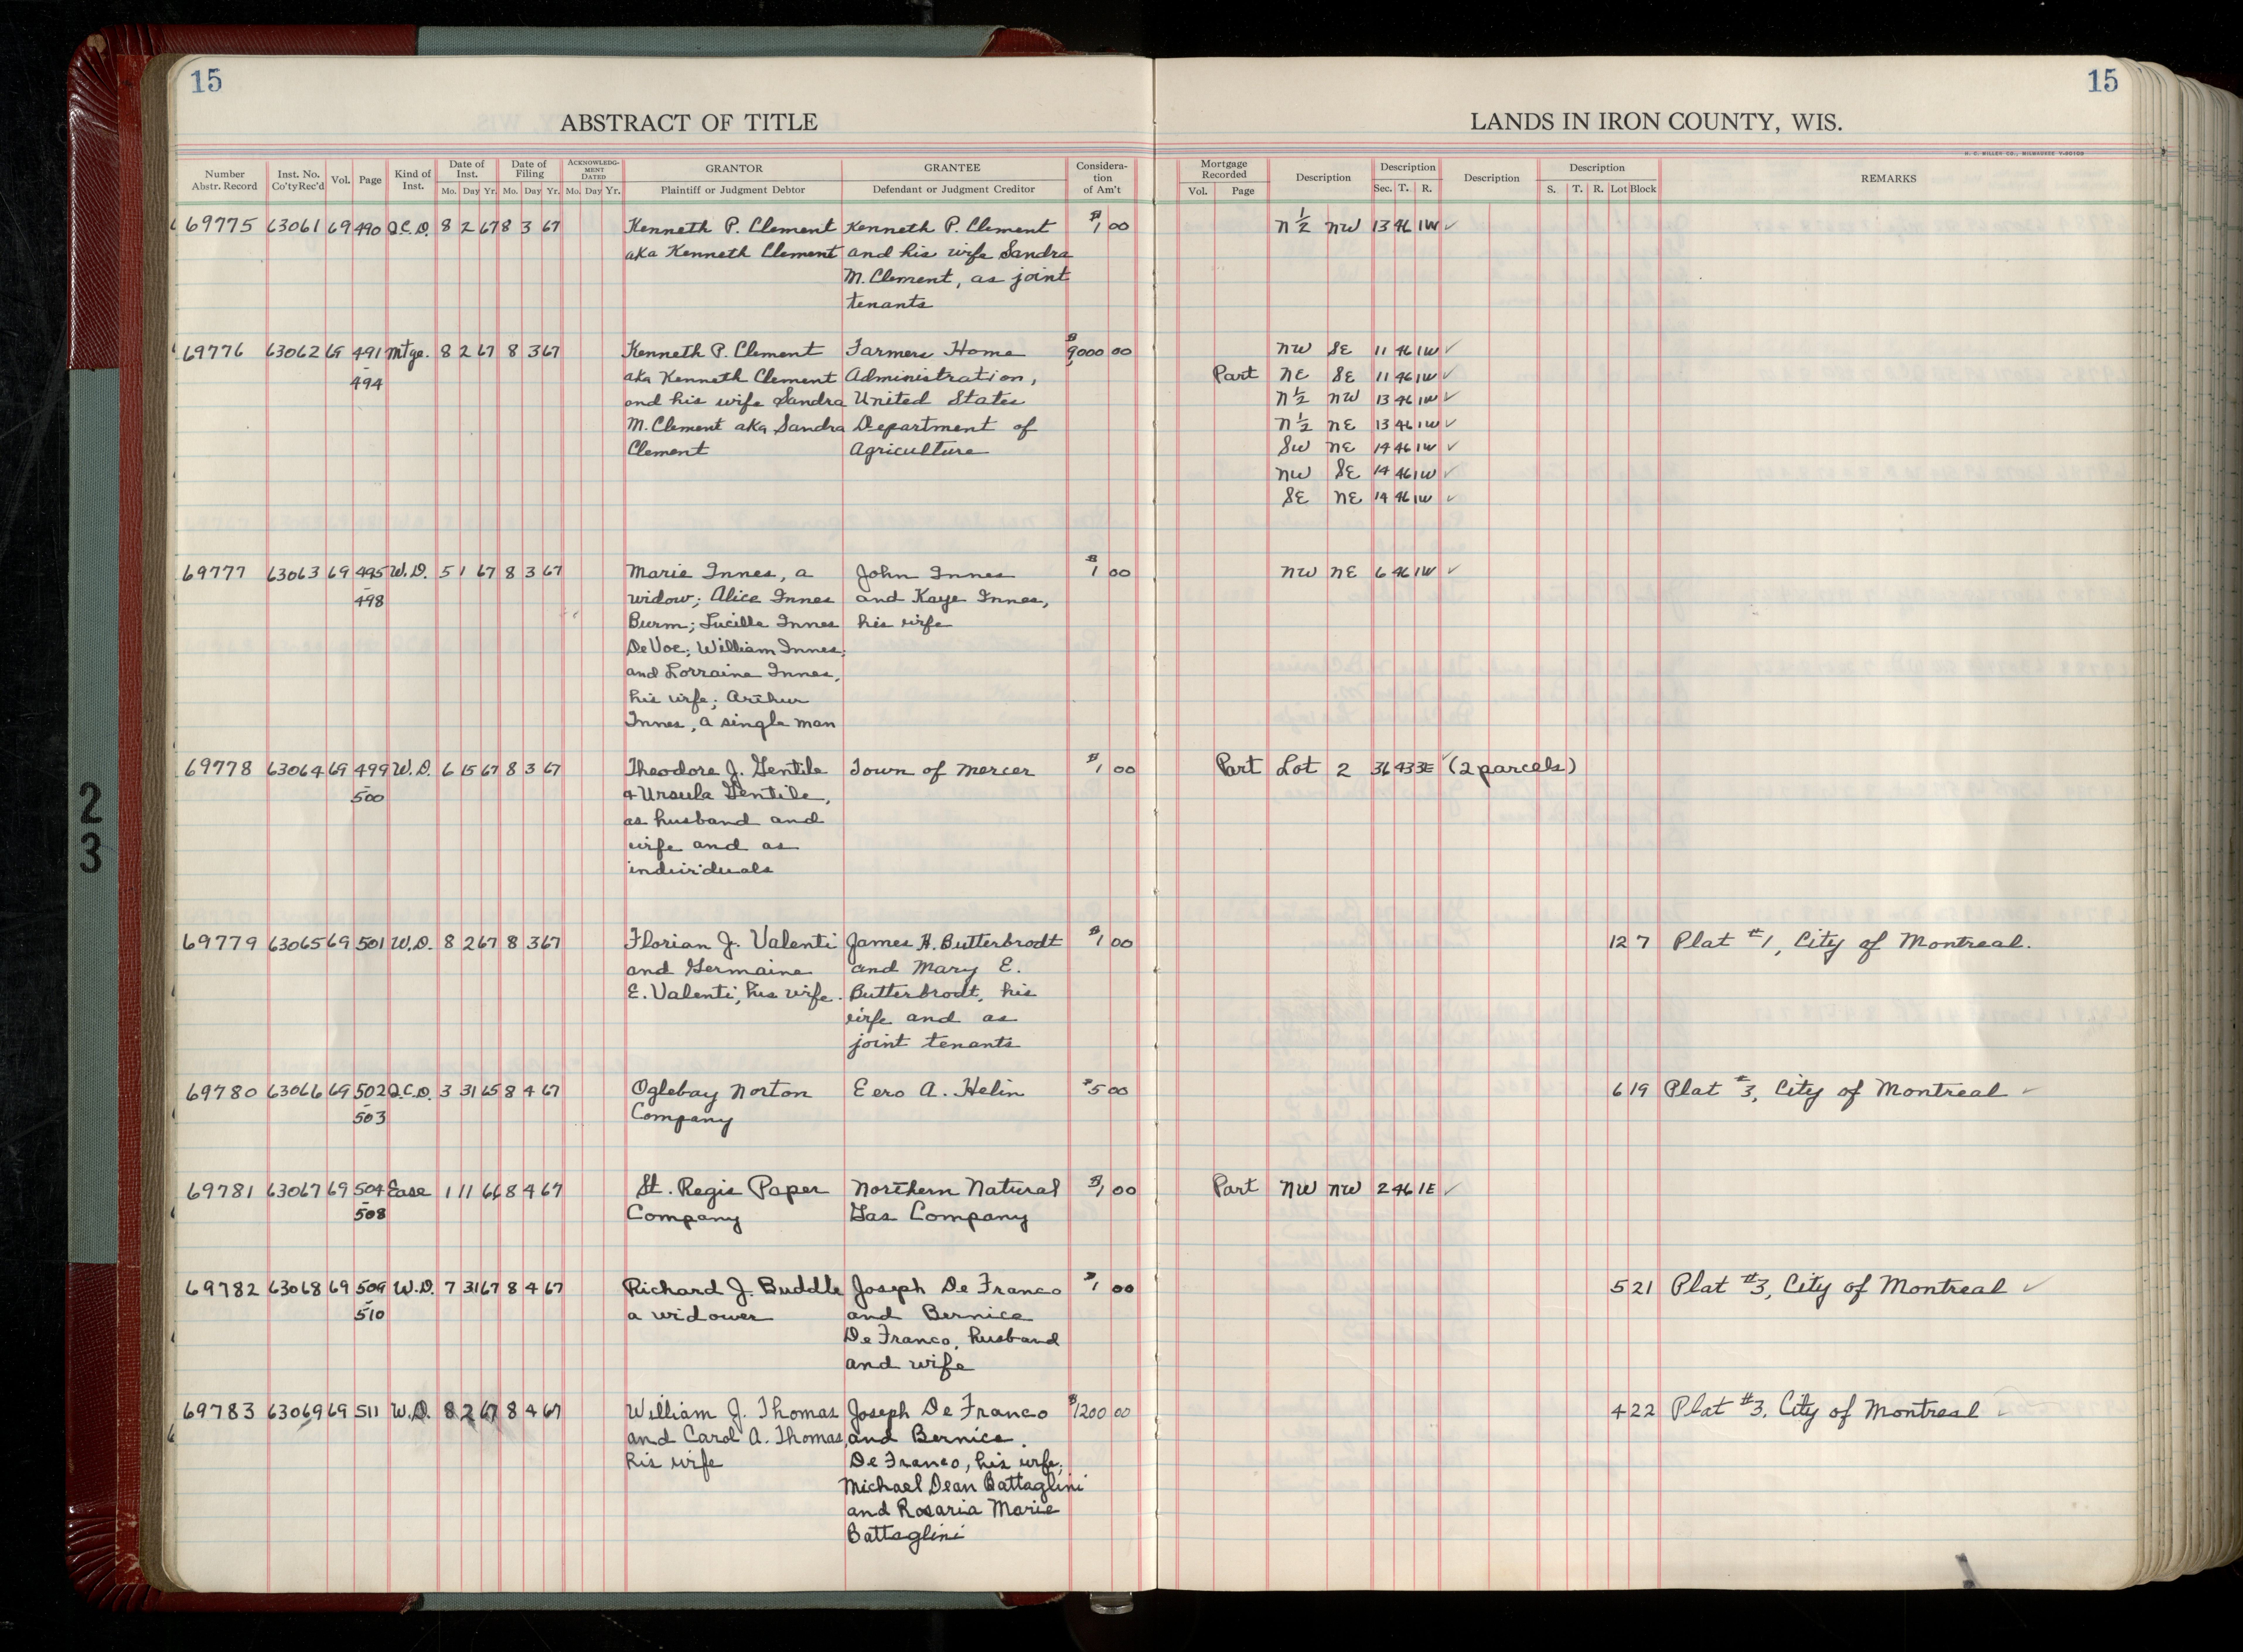 15
15
ABSTRACT OF TITLE
LANDS IN IRON COUNTY, WIS.
H. C. MILLER CO., MILWAUKEE
Number Abstr. Record Inst. No. Co'ty Rec'd Vol. Page Kind of Inst. Date of Inst. Mo. Day Yr. Date of Filing Mo. Day Yr. ACKNOWLEDGMENT DATED Mo. Day Yr. GRANTOR Plaintiff or Judgment Debtor GRANTEE Defendant or Judgment Creditor Consideration of Am't Mortgage Recorded Vol. Page Description Description Sec. T. R. Description Description S. T. R. Lot Block REMARKS
69775 63061 69 490 Q.C.D. 8 2 67 8 3 67 Kenneth P. Clement Kenneth P. Clement $1 00 N 1/2 NW 13 46 1W ✓
aka Kenneth Clement and his wife Sandra
M. Clement, as joint
tenants
69776 63062 69 491 Mtge. 8 2 67 8 3 67 Kenneth P. Clement Farmers Home $9000 00 NW SE 11 46 1W ✓
- 494 aka Kenneth Clement Administration, Part NE SE 11 46 1W ✓
and his wife Sandra United States N 1/2 NW 13 46 1W ✓
M. Clement aka Sandra Department of N 1/2 NE 13 46 1W ✓
Clement Agriculture SW NE 14 46 1W ✓
NW SE 14 46 1W ✓
SE NE 14 46 1W ✓
69777 63063 69 495 W.D. 5 1 67 8 3 67 Marie Innes, a John Innes $1 00 NW NE 6 46 1W ✓
- 498 widow; Alice Innes and Kaye Innes,
Burm; Lucille Innes his wife
DeVoe; William Innes;
and Lorraine Innes,
his wife; Arthur
Innes, a single man
69778 63064 69 499 W.D. 6 15 67 8 3 67 Theodore J. Gentile Town of Mercer $1 00 Part Lot 2 36 43 3E ✓ (2 parcels)
- 500 & Ursula Gentile,
as husband and
wife and as
individuals
69779 63065 69 501 W.D. 8 2 67 8 3 67 Florian J. Valenti James H. Butterbrodt $1 00 12 7 Plat #1, City of Montreal.
and Germaine and Mary E.
E. Valenti, his wife. Butterbrodt, his
wife and as
joint tenants
69780 63066 69 502 Q.C.D. 3 31 65 8 4 67 Oglebay Norton Eero A. Helin $5 00 6 19 Plat #3, City of Montreal ✓
- 503 Company
69781 63067 69 504 Ease 1 11 66 8 4 67 St. Regis Paper Northern Natural $1 00 Part NW NW 2 46 1E ✓
- 508 Company Gas Company
69782 63068 69 509 W.D. 7 31 67 8 4 67 Richard J. Buddle Joseph De Franco $1 00 5 21 Plat #3, City of Montreal ✓
- 510 a widower and Bernice
De Franco, husband
and wife
69783 63069 69 511 W.D. 8 2 67 8 4 67 William J. Thomas Joseph De Franco $1200 00 4 22 Plat #3, City of Montreal ✓
and Carol A. Thomas, and Bernice
his wife De Franco, his wife;
Michael Dean Battaglini
and Rosaria Marie
Battaglini
23